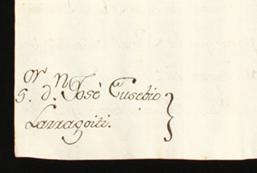 S.or d.n Josè Eusebio
Larragoiti.